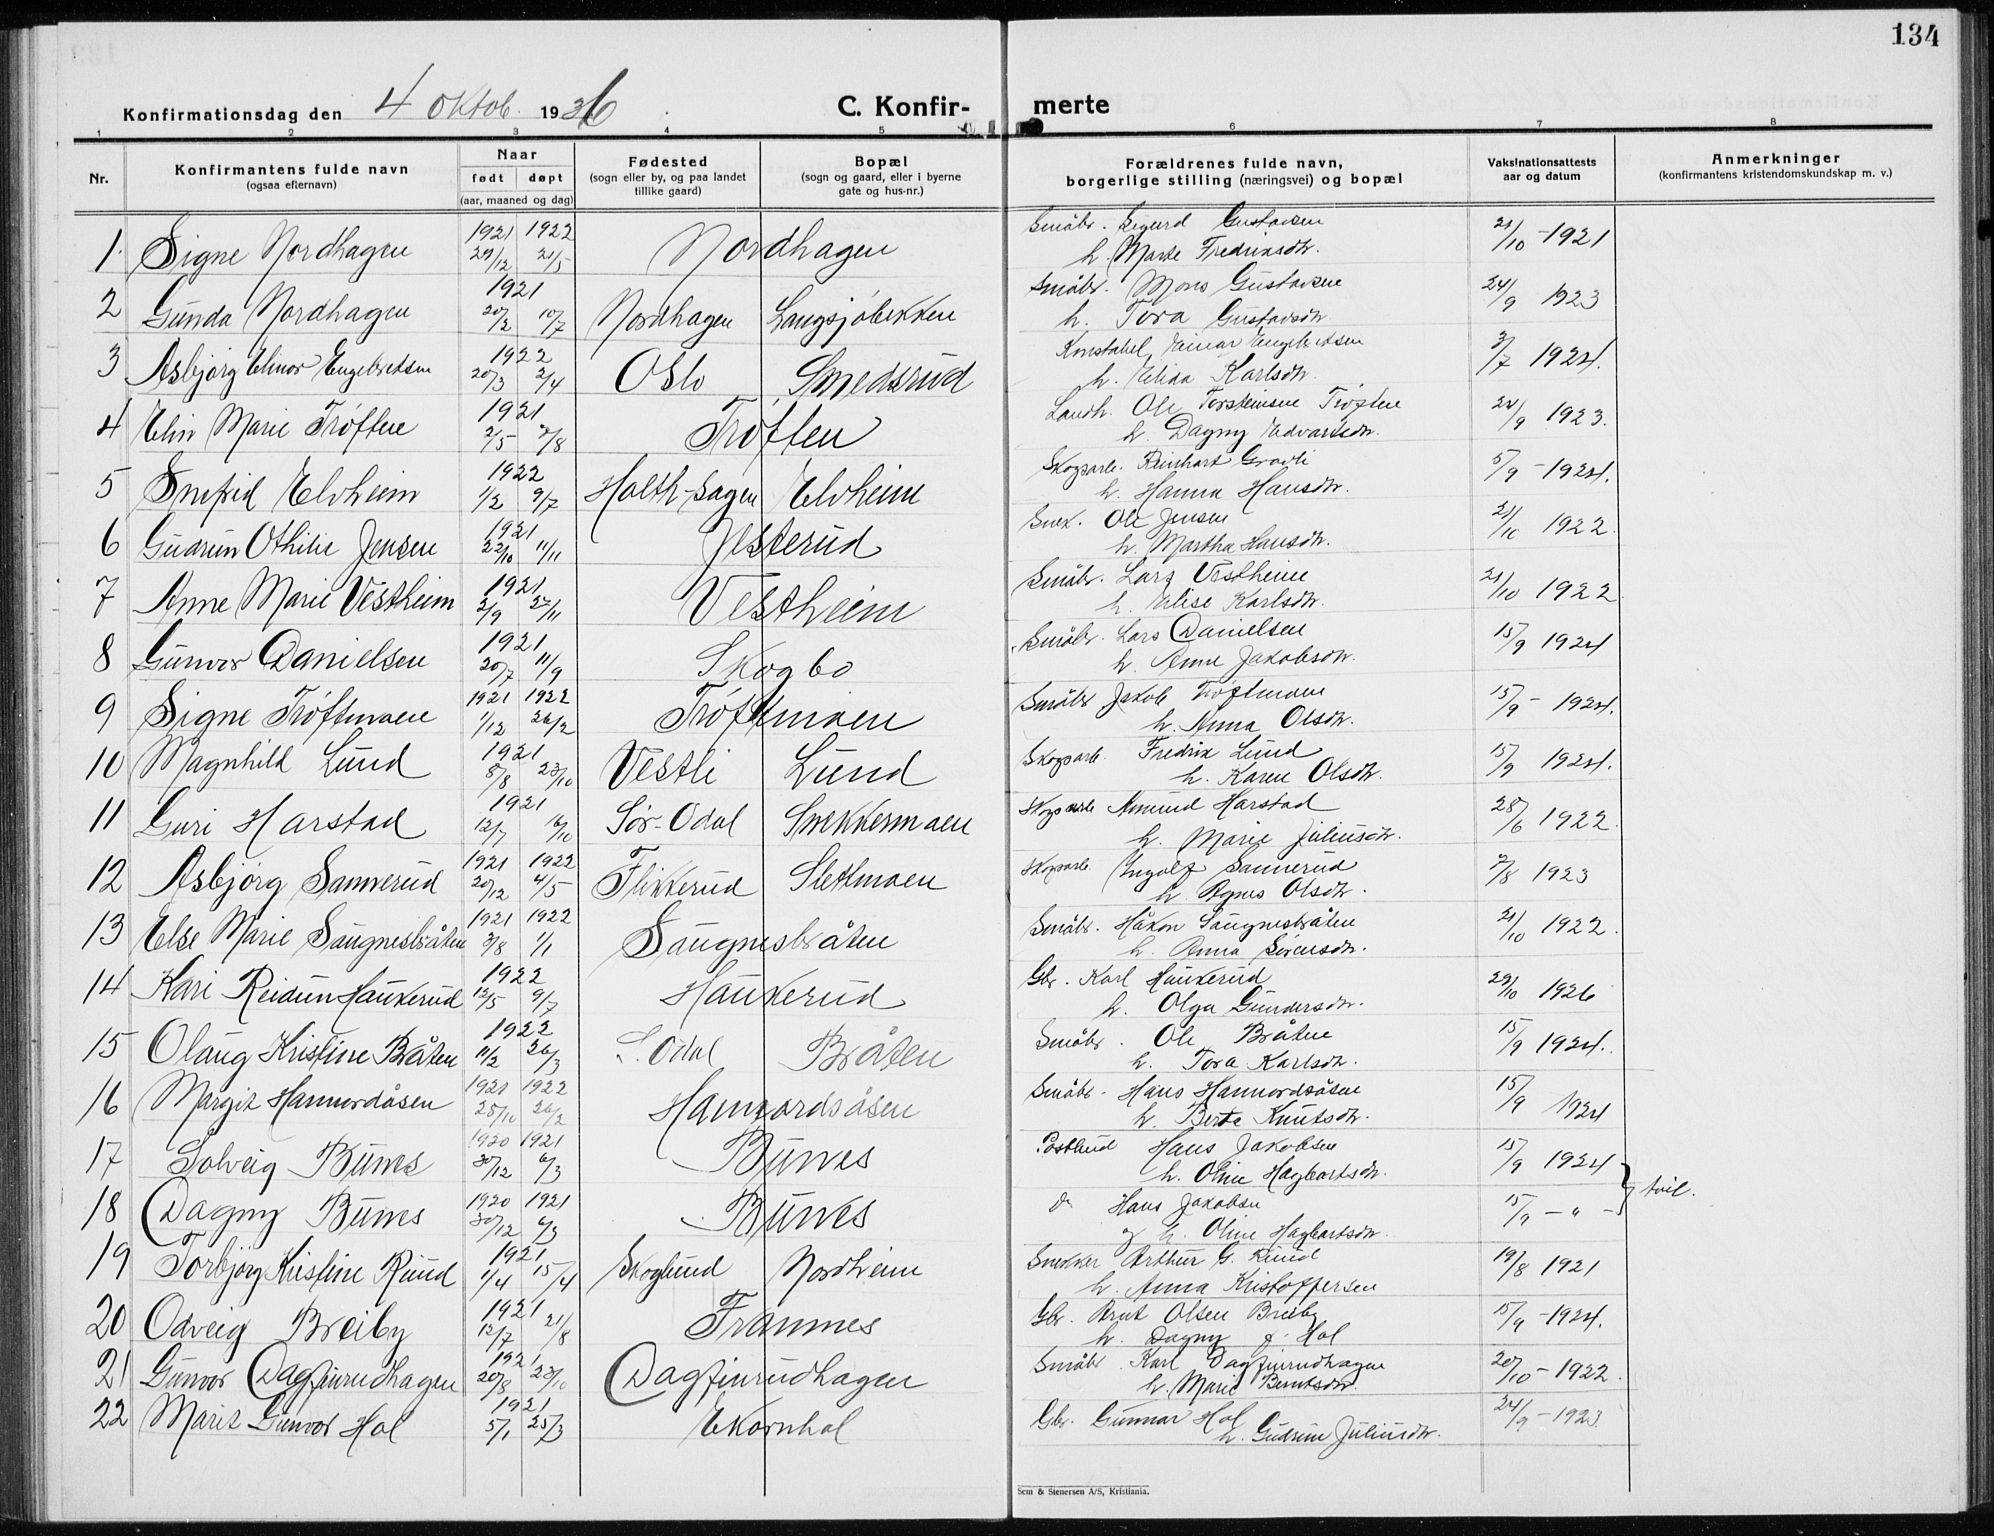 134
Konfirmationsdag den 4 Oktob. 1936 C. Konfir- merte
1 2 3 4 5 6 7 8
Nr. Konfirmantens fulde navn (ogsaa efternavn) Naar født døpt (aar, maaned og dag) Fødested (sogn eller by, og paa landet tillike gaard) Bopæl (sogn og gaard, eller i byerne gate og hus-nr.) Forældrenes fulde navn, borgerlige stilling (næringsvei) og bopæl Vaksinationsattests aar og datum Anmerkninger (konfirmantens kristendomskundskap m. v.)
1921 1922 Småbr. Sigurd Gustavsen
1. Signe Nordhagen 29/12 21/5 Nordhagen h. Marte Fredriksdtr. 21/10 - 1921
1921 Småbr. Mons Gustavsen
2 Gunda Nordhagen 20/2 10/7 Nordhagen Langsjøbekken h. Tora Gustavsdtr. 24/9 1923
1922 Konstabel Einar Engebretsen
3 Asbjørg Elinor Engebretsen 20/3 2/4 Oslo Smedsrud h. Elida Karlsdtr. 3/7 1924.
1921 Landh. Ole Torsteinsen Trøften
4 Elin Marie Trøften 2/5 7/8 Trøften h. Dagny Edvartsdtr. 24/9 1923.
1922 Skogsarb. Reinhart Gravli
5 Snefrid Elvheim 1/2 9/7 Holth-sagen Elvheim h. Hanna Hansdtr. 5/9 - 1924.
1921 Snek. Ole Jensen
6 Gudrun Othilie Jensen 22/10 11/11 Jesterud h. Martha Hansdtr. 21/10 1922.
1921 Småbr. Lars Vestheim
7 Anne Marie Vestheim 2/9 27/11 Vestheim h. Elise Karlsdtr. 21/10 1922.
1921 Småbr. Lars Danielsen
8 Gunvor Danielsen 20/7 11/9 Skogbo h. Anne Jakobsdtr. 15/9 1924
1921 1922 Småbr Jakob Trøftmoen
9 Signe Trøftmoen 1/12 26/2 Trøftmoen h. Anna Olsdtr. 15/9 - 1924.
1921 Skogsarb. Fredrik Lund
10 Magnhild Lund 8/8 23/10 Vestli Lund h. Karen Olsdtr. 15/9 1924.
1921 Skogsarb Amund Harstad
11 Guri Harstad 12/7 16/10 Sør-Odal Snekkermoen h. Marie Juliusdtr. 28/6 1922.
1921 1922 Skogsarb Ingolf Sannerud
12 Asbjørg Sannerud 20/12 4/5 Flikkerud Sletmoen h Agnes Olsdtr. 2/8 1923
1921 1922 Småbr. Håkon Saugnesbråten
13 Else Marie Saugnesbråten 3/8 1/1 Saugnesbråten h. Anna Sørensdtr. 21/10 1922.
1922 Gbr. Karl Haukerud
14 Kari Reidun Haukerud 12/5 9/7 Haukerud h. Olga Gundersdtr. 29/10 1926
1922 Småbr. Ole Bråten
15 Olaug Kristine Bråten 11/2 26/3 S. Odal Bråten h. Tora Karlsdtr. 15/9 1924.
1921 1922 Småbr. Hans Hannordsåsen
16 Margit Hannordåsen 28/10 26/2 Hannordsåsen h. Berte Knutsdtr. 15/9 1924
1920 1921 Postbud Hans Jakobsen
17 Solveig Bunes 30/12 6/3 Bunes h. Oline Hagbartsdtr. 15/9 1924
1920 1921 do Hans Jakobsen
18 Dagny Bunes 30/12 6/3 Bunes og h. Oline Hagbartsdtr. 15/9 - " - tvil.
1921 Snekker Arthur G. Ruud
19 Torbjørg Kristine Ruud 1/4 15/4 Skoglund Nordheim h. Anna Kristoffersen 19/8 1921
1921 Gbr. Arnt Olsen Breiby
20 Odveig Breiby 12/7 21/8 Framnes h. Dagny f. Hol 15/9 - 1924.
1921 Småbr. Karl Dagfinrudhagen
21 Gunvor Dagfinrudhagen 20/8 23/10 Dagfinrudhagen h. Marie Berntsdtr. 20/10 - 1922.
1921 Gbr. Gunnar Hol
22 Marit Gunvor Hol 5/1 25/3 Ekornhol h. Gudrun Juliusdtr. 24/9 - 1923
Sem & Stenersen A/S, Kristiania.